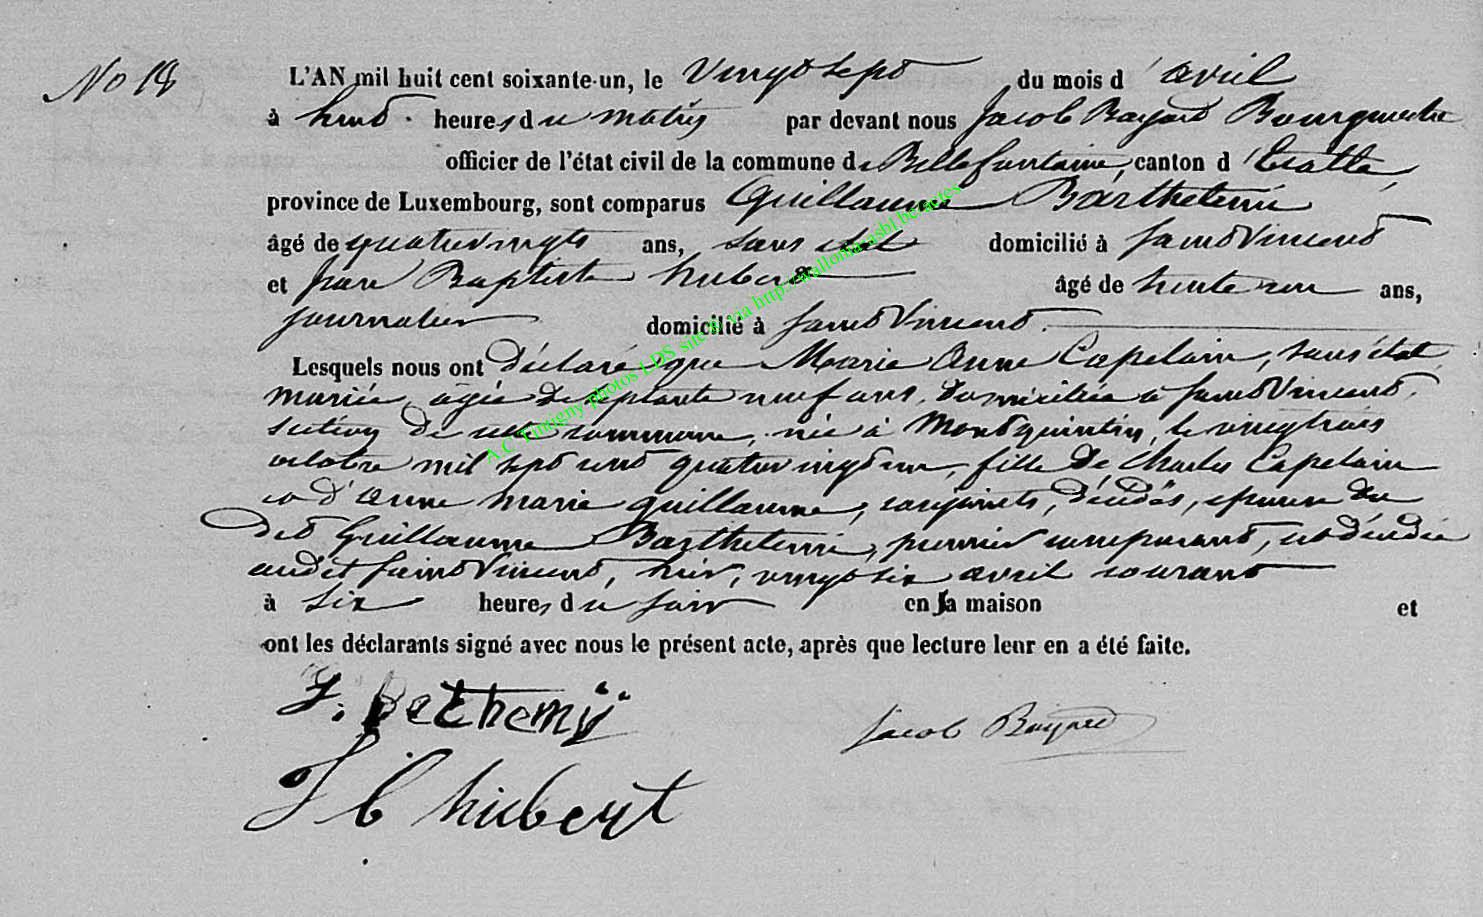 No 18
L'AN mil huit cent soixante-un, le vingt sept du mois d'avril
à huit heures du matin par devant nous Jacob Bayard Bourgmestre
officier de l'état civil de la commune de Bellefontaine, canton d'Etalle,
province de Luxembourg, sont comparus Guillaume Barthelemi
âgé de quatrevingts ans, sans état domicilié à Saint Vincent
et Jean Baptiste hubert âgé de trente un ans,
journalier domicilié à Saint Vincent.
Lesquels nous ont déclaré que Marie Anne Capelain, sans état
mariée, agée de septante neuf ans, domiciliée à Saint Vincent,
section de cette commune, née à Montquintin, le vingt trois
octobre mil sept cent quatrevingt un, fille de Charles Capelain
et d'Anne Marie Guillaume, conjoints, décédés, épouse du
dit Guillaume Barthelemi, premier comparant, est décédée
audit Saint Vincent, hier, vingt six avril courant
à six heures du soir en sa maison et
ont les déclarants signé avec nous le présent acte, après que lecture leur en a été faite.
Jacob Bayard
J B hubert
A.C. Tintigny photos LDS site @ via http://wallonia-asbl.be/actes